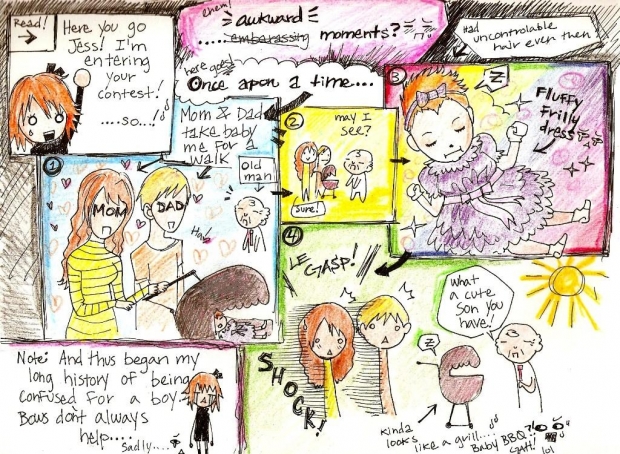 Read!
Here you go
Jess! I'm
entering
your
contest!
....so...!
ehem!
awkward
..... embarassing moments?
here goes!
Once apon a time....
Had
uncontrolable
hair even then
1
Mom & Dad
take baby
me for a
walk
MOM
DAD
old
man
Hm
2
may I
see?
Sure!
3
Z
Fluffy
frilly
dress
4
LE GASP!
SHOCK!
What
a cute
Son you
have!
Z
Kinda
looks
like a grill....
Baby BBQ?!
lol
Note: And thus began my
long history of being
confused for a boy.
Bows don't always
help....
Sadly...